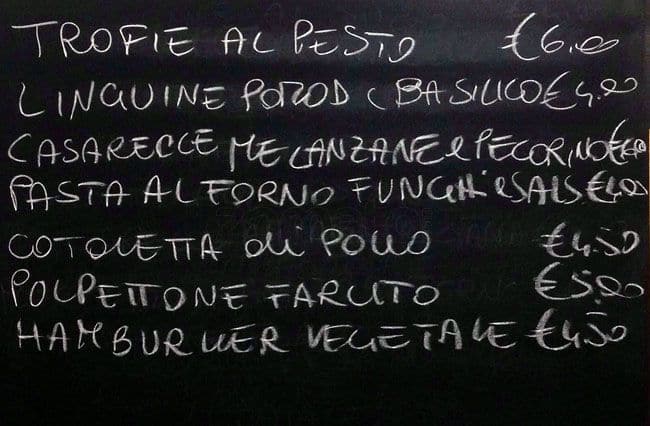 TROFIE AL PESTO €6.00
LINGUINE POMOD e BASILICO €4.00
CASARECCE MELANZANE e PECORINO
PASTA AL FORNO FUNGHI e SALS €4.00
COTOLETTA di POLLO €4.50
POLPETTONE FARCITO €5.00
HAMBURGER VEGETALE €4.50